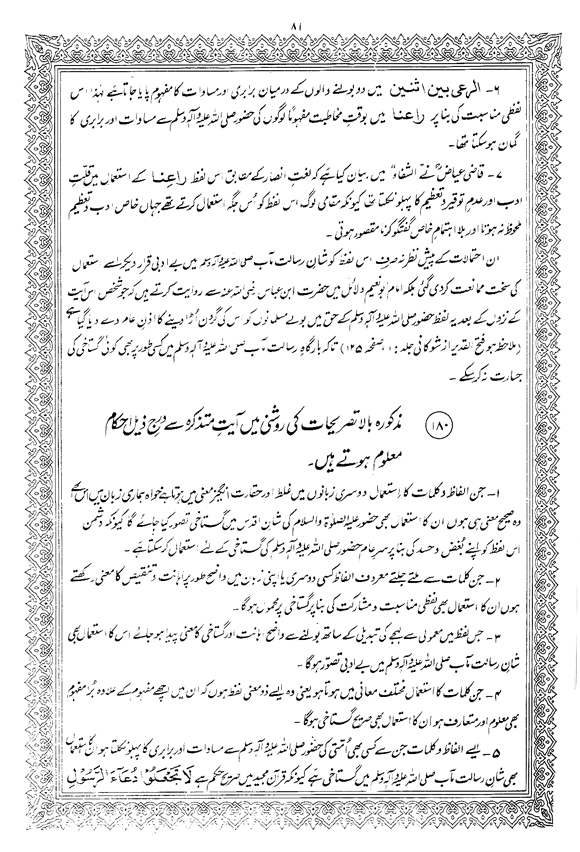 ۸۱
۶۔ الرعی بین اثنین میں دو بولنے والوں کے درمیان برابری اور مساوات کا مفہوم پایا جاتا ہے لہٰذا اس
لفظی مناسبت کی بنا پر راعنا میں بوقتِ مخاطبت مفہوماً لوگوں کی حضور صلی اللہ علیہ وآلہ وسلم سے مساوات اور برابری کا
گمان ہو سکتا تھا۔
۷۔ قاضی عیاضؒ نے "الشفاء" میں بیان کیا ہے کہ لغتِ انصار کے مطابق اس لفظ راعنا کے استعمال میں قلتِ
ادب اور عدمِ توقیر و تعظیم کا پہلو نکلتا تھا کیونکہ مقامی لوگ اس لفظ کو اُس جگہ استعمال کرتے تھے جہاں خاص ادب و تعظیم
ملحوظ نہ ہوتا اور بلا اہتمامِ خاص گفتگو کرنا مقصود ہوتی۔
ان احتمالات کے پیش نظر نہ صرف اس لفظ کو شانِ رسالت مآب صلی اللہ علیہ وآلہ وسلم میں بے ادبی قرار دیکر اسے استعمال
کی سخت ممانعت کر دی گئی بلکہ امام ابو نعیم دلائل میں حضرت ابن عباس رضی اللہ عنہ سے روایت کرتے ہیں کہ جو شخص اس آیت
کے نزول کے بعد یہ لفظ حضور صلی اللہ علیہ وآلہ وسلم کے حق میں بولے مسلمانوں کو اس کی گردن اُڑا دینے کا اذنِ عام دے دیا گیا ہے
(ملاحظہ ہو فتح القدیر از شوکانی جلد: ۱، صفحہ ۱۲۵) تاکہ بارگاہِ رسالت مآب صلی اللہ علیہ وآلہ وسلم میں کسی طور پر بھی کوئی گستاخی کی
جسارت نہ کر سکے۔
(۱۸۰) مذکورہ بالا تصریحات کی روشنی میں آیتِ متذکرہ سے درج ذیل احکام
معلوم ہوتے ہیں۔
۱۔ جن الفاظ و کلمات کا استعمال دوسری زبانوں میں غلط اور حقارت انگیز معنی میں ہوتا ہے خواہ ہماری زبان میں اس کے
وہ صحیح معنی ہی ہوں ان کا استعمال بھی حضور علیہ الصلوٰۃ والسلام کی شانِ اقدس میں گستاخی تصور کیا جائے گا کیونکہ دشمن
اس لفظ کو اپنے بُغض و حسد کی بنا پر سرِ عام حضور صلی اللہ علیہ وآلہ وسلم کی گستاخی کے لئے استعمال کر سکتا ہے۔
۲۔ جن کلمات سے ملتے جلتے معروف الفاظ کسی دوسری یا اپنی زبان میں واضح طور پر اہانت و تنقیص کا معنی رکھتے
ہوں ان کا استعمال بھی لفظی مناسبت و مشارکت کی بنا پر گستاخی پر محمول ہو گا۔
۳۔ جس لفظ میں معمولی سے لہجے کی تبدیلی کے ساتھ بولنے سے واضح اہانت اور گستاخی کا معنی پیدا ہو جائے اس کا استعمال بھی
شانِ رسالت مآب صلی اللہ علیہ وآلہ وسلم میں بے ادبی تصور ہو گا۔
۴۔ جن کلمات کا استعمال مختلف معانی میں ہوتا ہو یعنی وہ ایسے ذو معنی لفظ ہوں کہ ان میں اچھے مفہوم کے علاوہ بُرا مفہوم
بھی معلوم اور متعارف ہو ان کا استعمال بھی صریح گستاخی ہو گا۔
۵۔ ایسے الفاظ و کلمات جن سے کسی بھی اُمتی کی حضور صلی اللہ علیہ وآلہ وسلم سے مساوات اور برابری کا پہلو نکلتا ہو ان کا استعمال
بھی شانِ رسالت مآب صلی اللہ علیہ وآلہ وسلم میں گستاخی ہے کیونکہ قرآن مجید میں صریح حکم ہے لَا تَجْعَلُوْا دُعَآءَ الرَّسُوْلِ